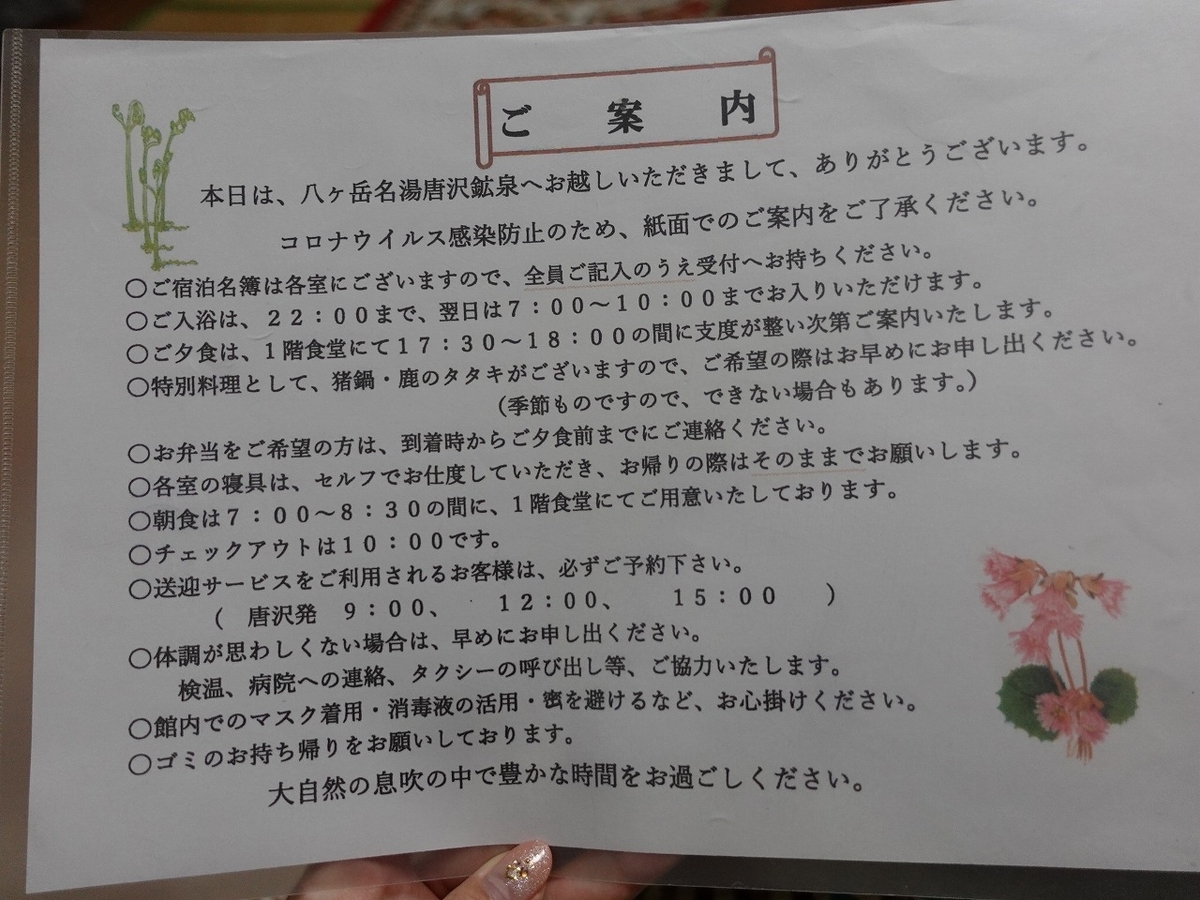 ご案内
本日は、八ヶ岳名湯唐沢鉱泉へお越しいただきまして、ありがとうございます。
コロナウイルス感染防止のため、紙面でのご案内をご了承ください。
〇ご宿泊名簿は各室にございますので、全員ご記入のうえ受付へお持ちください。
〇ご入浴は、22：00まで、翌日は7：00～10：00までお入りいただけます。
〇ご夕食は、1階食堂にて17：30～18：00の間に支度が整い次第ご案内いたします。
〇特別料理として、猪鍋・鹿のタタキがございますので、ご希望の際はお早めにお申し出ください。
（季節ものですので、できない場合もあります。）
〇お弁当をご希望の方は、到着時からご夕食前までにご連絡ください。
〇各室の寝具は、セルフでお仕度していただき、お帰りの際はそのままでお願いします。
〇朝食は7：00～8：30の間に、1階食堂にてご用意いたしております。
〇チェックアウトは10：00です。
〇送迎サービスをご利用されるお客様は、必ずご予約下さい。
（　唐沢発　9：00、　12：00、　15：00　）
〇体調が思わしくない場合は、早めにお申し出ください。
検温、病院への連絡、タクシーの呼び出し等、ご協力いたします。
〇館内でのマスク着用・消毒液の活用・密を避けるなど、お心掛けください。
〇ゴミのお持ち帰りをお願いしております。
大自然の息吹の中で豊かな時間をお過ごしください。